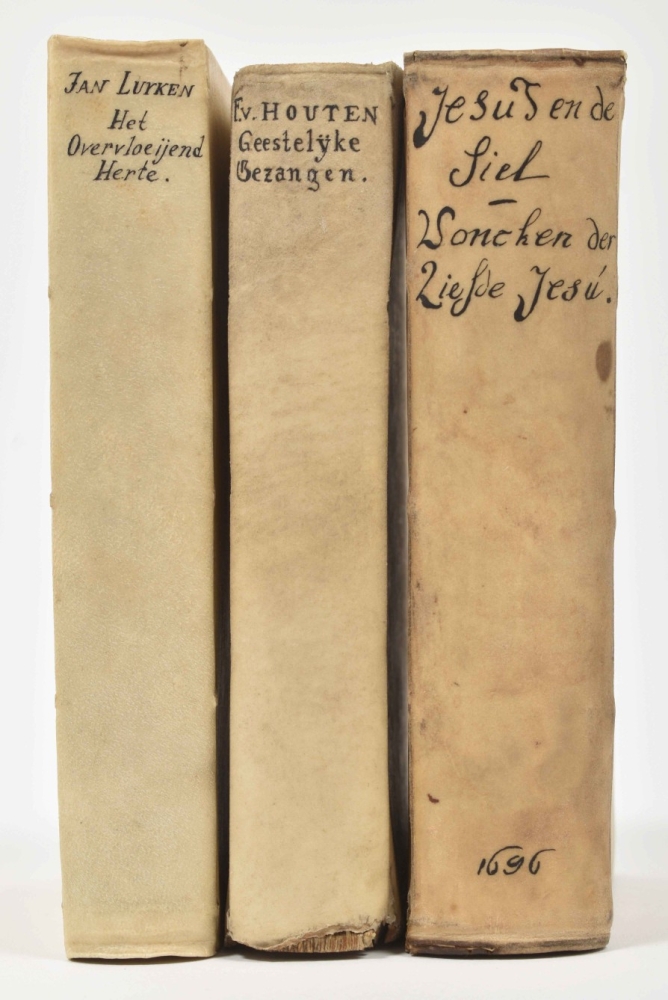 JAN LUYKEN
Het
Overvloeijend
Herte.
F.v. HOUTEN
Geestelÿke
Gezangen.
Jesus en de
Siel
–
Voncken der
Liefde Jesú.
1696